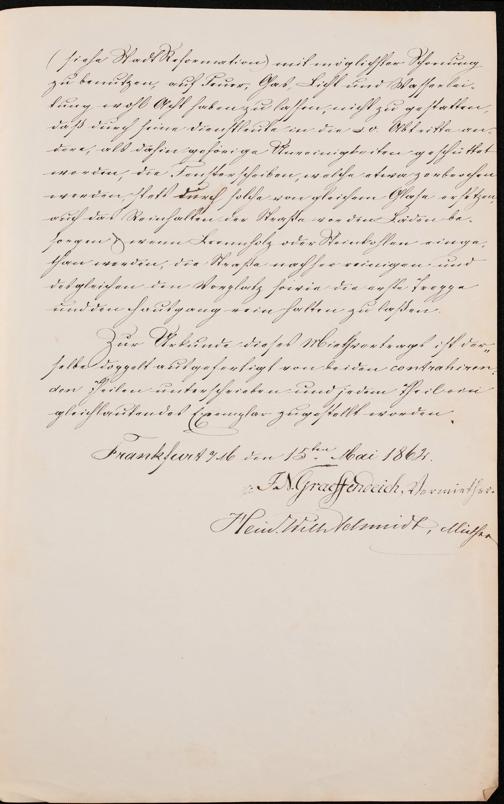 (siehe Stadt Reformation) mit möglichster Schonung
zu benutzen, auf Feuer, Gas, Licht und Wasserlei-
tung wohl Acht haben zu lassen, nicht zu gestatten,
daß durch seine Dienstleute in die Abtritte an-
dere, als dahin gehörige Unreinigkeiten geschüttet
werden, die Fensterscheiben, welche etwa zerbrochen
werden, statt durch solche von gleichem Glase ersetzen
auch das Reinhalten der Straße vor den Läden be-
sorgen, wenn Brennholz oder Steinkohlen einge-
than werden, die Straße nachher reinigen und
desgleichen den Vorplatz sowie die erste Treppe
und den Hausgang rein halten zu laßen.
Zur Urkunde dieses Miethvertrags ist der-
selbe doppelt ausgefertigt von beiden contrahiren-
den Theilen unterschrieben und jedem Theil ein
gleichlautendes Exemplar zugestellt worden.
Frankfurt a/M den 15ten Mai 1862.
J. N. Graeffendeich, Vermiether
Heinr. Wilh. Schmidt, Miether